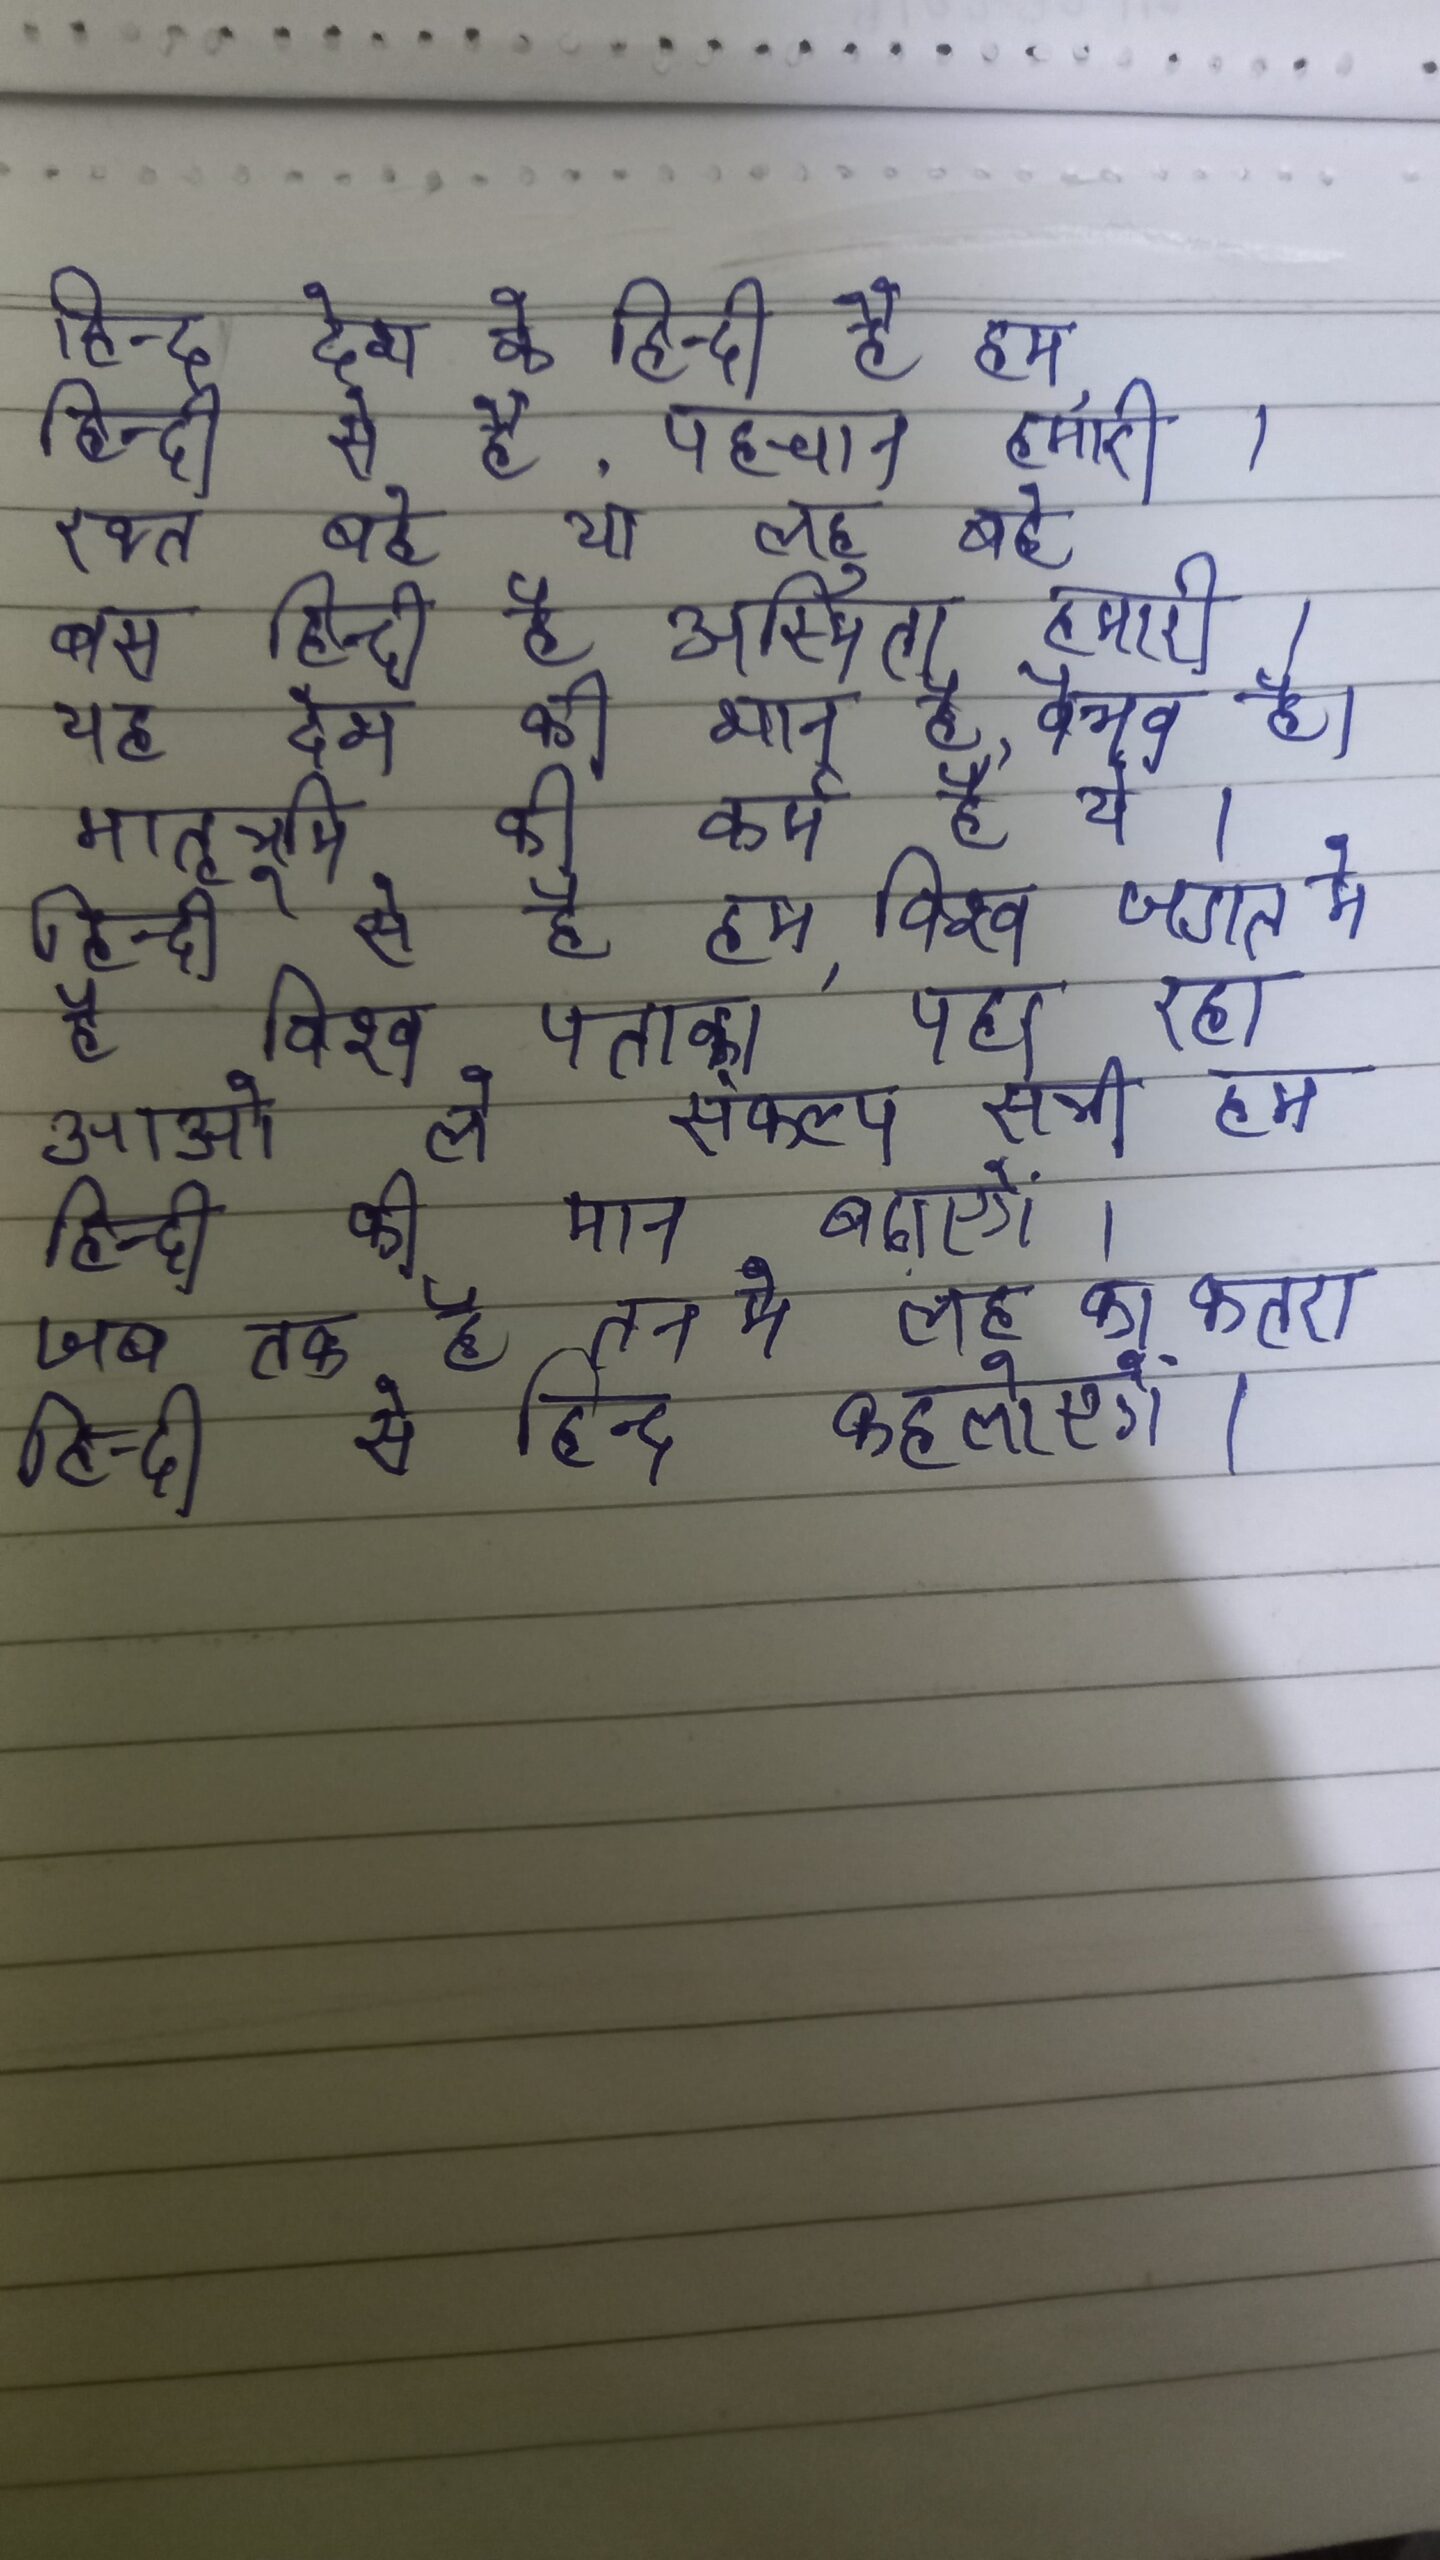 हिन्द देश के हिन्दी है हम,
हिन्दी से है, पहचान हमारी ।
रक्त बहे या लहु बहे
बस हिन्दी है अस्मिता हमारी ।
यह देश की शान है, वैभव है।
मातृभूमि की कर्म है ये ।
हिन्दी से है हम, विश्व जगत मे
है विश्व पताका रहा
आओ ले संकल्प सभी हम
हिन्दी की मान बढाएगें ।
जब तक है तन मे लहू का कतरा
हिन्दी से हिन्द कहलाएगें ।